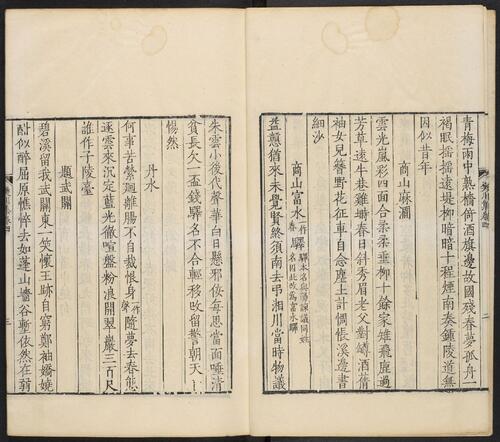 青梅雨中熟檣倚酒旗邊故國殘春夢孤舟一
褐眠搖搖遠堤柳暗暗十程煙南奏鍾陵道無
因似昔年
商山麻澗
雲光嵐彩四面合柔柔垂柳十餘家雉飛鹿過
芳草遠牛巷雞塒春日斜秀眉老父對罇酒蒨
袖女兒簪野花征車自念塵土計惆悵溪邊書
細沙
商山富水驛驛本名與陽諫議同姓名因此改為富水驛
益戇猶來未覺賢終須南去弔湘川當時物議
朱雲小後代聲華白日懸邪佞每思當面唾清
貧長欠一盃錢驛名不合輕移改留警朝天
惕然
丹水
何事苦縈迴離腸不自裁恨身一作聲隨夢去春態
逐雲來沉定藍光徹喧盤粉浪開翠巖三百尺
誰作子陵臺
題武關
碧溪留我武關東一笑懷王跡自窮鄭袖嬌嬈
酣似醉屈原憔悴去如蓬山牆谷塹依然在弱